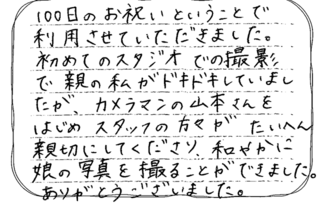 100日のお祝いということで
利用させていただきました。
初めてのスタジオでの撮影
で親の私がドキドキしていまし
たが、カメラマンの山本さんを
はじめスタッフの方々が たいへん
親切にしてくださり、和やかに
娘の写真を撮ることができました。
ありがとうございました。